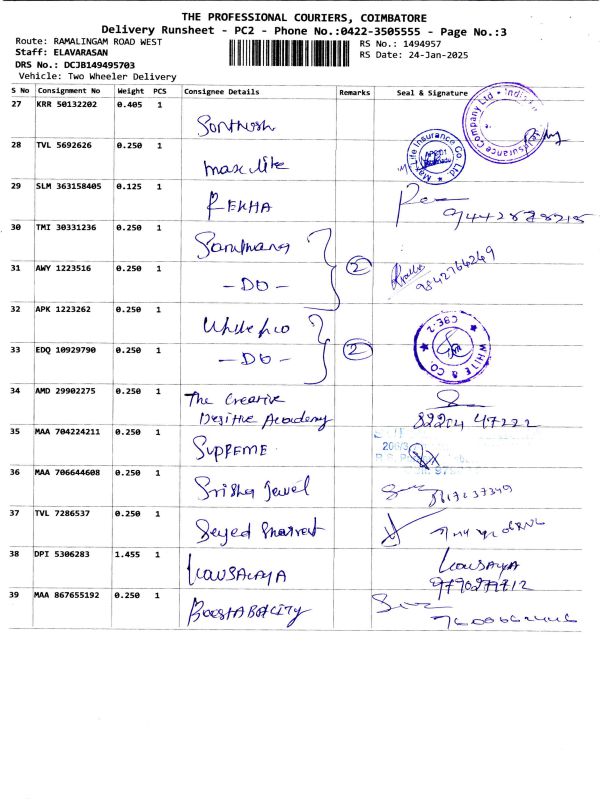 THE PROFESSIONAL COURIERS, COIMBATORE
Delivery Runsheet - PC2 - Phone No.:0422-3505555 - Page No.:3
Route: RAMALINGAM ROAD WEST
RS No.: 1494957
Staff: ELAVARASAN
RS Date: 24-Jan-2025
DRS No.: DCJB149495703
Vehicle: Two Wheeler Delivery
S No Consignment No Weight PCS Consignee Details Remarks Seal & Signature
27 KRR 50132202 0.405 1 Santhosh
28 TVL 5692626 0.250 1 max life Max Life Insurance Co. Ltd.
29 SLM 363158405 0.125 1 REKHA
30 TMI 30331236 0.250 1
31 AWY 1223516 0.250 1 - DO - 2 9842764249
32 APK 1223262 0.250 1
33 EDQ 10929790 0.250 1 - DO - 2 WHITE & CO. CBE-2
34 AMD 29902275 0.250 1 The Creative
Academy 82204 47222
35 MAA 704224211 0.250 1 SUPREME
36 MAA 706644608 0.250 1 Srisha Jewel
37 TVL 7286537 0.250 1 Seyed
38 DPI 5306283 1.455 1 KOUSALAYA KOUSALYA
39 MAA 867655192 0.250 1